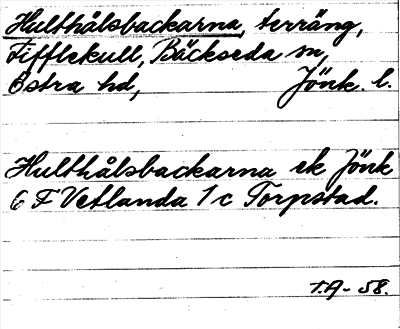 Hulthålsbackarna, terräng,
Fifflekull, Bäckseda sn,
Östra hd, Jönk. l.
Hulthålsbackarna ek Jönk
6 F Vetlanda 1 c Torpstad.
T.A- 58.